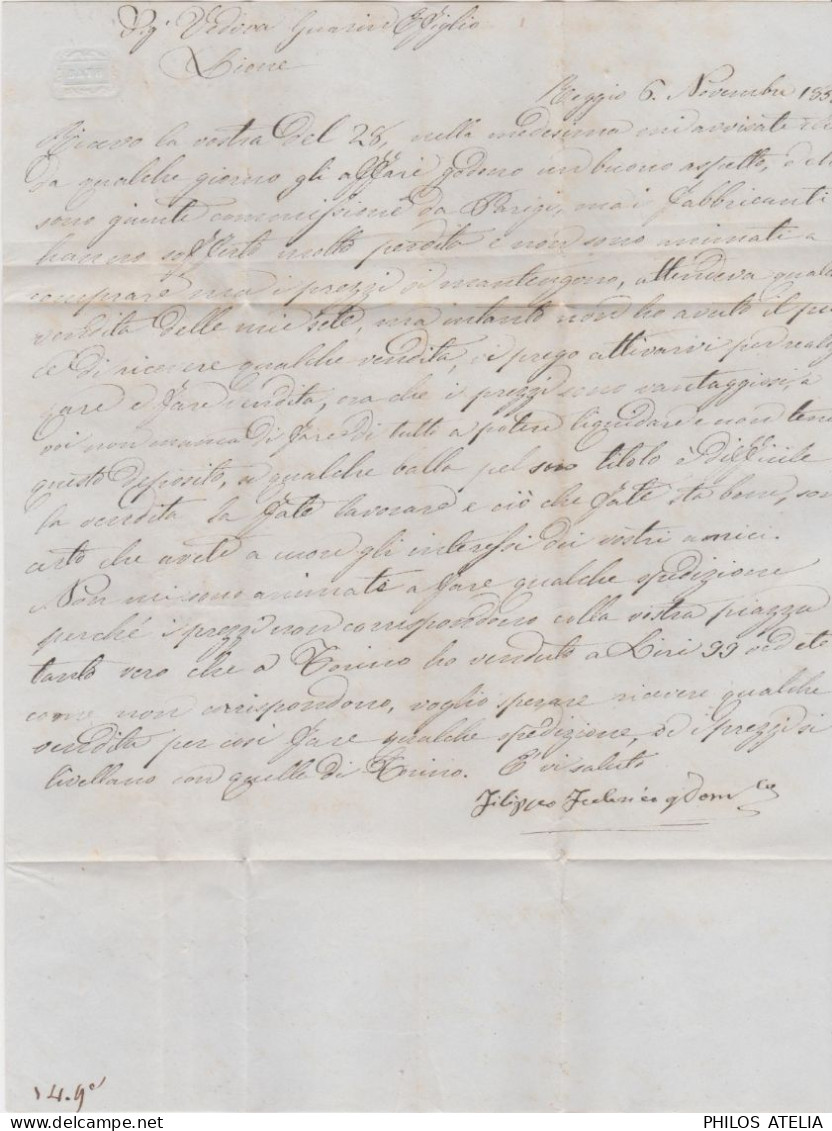 Sig.i Vedova Guerin & Figlio
Lione
BATH
Reggio 6. Novembre 185
Ricevo la vostra del 28, nella medesima mi avvisate che
da qualche giorno gli affari godono un buono aspetto, e che
sono giunte commissione da Parigi, ma i fabbricanti
hanno sofferto molto perdita e non sono animati a
comprare ma i prezzi si mantengono, attendeva qualche
vendita delle mie sete, ma intanto non ho avuto il pia
ce di ricevere qualche vendita, vi prego attivarvi per realiz
zare e fare vendita, ora che i prezzi sono vantaggiosi, a
voi non manca di fare di tutto a potere liquidare e non tene
questo deposito, a qualche balla pel suo titolo è difficile
la vendita la fate lavorare e ciò che fate sta bene, son
certo che avete a cuore gli interessi dei vostri amici.
Non mi sono animato a fare qualche spedizione
perché i prezzi non corrispondono colla vostra piazza
tanto vero che a Torino ho venduto a Liri 99
come non corrispondono, voglio sperare ricevere qualche
vendita per così fare qualche spedizione, se i prezzi si
livellano con quelle di Torino. E vi saluto
Filippo
14.9
PHILOS ATELIA